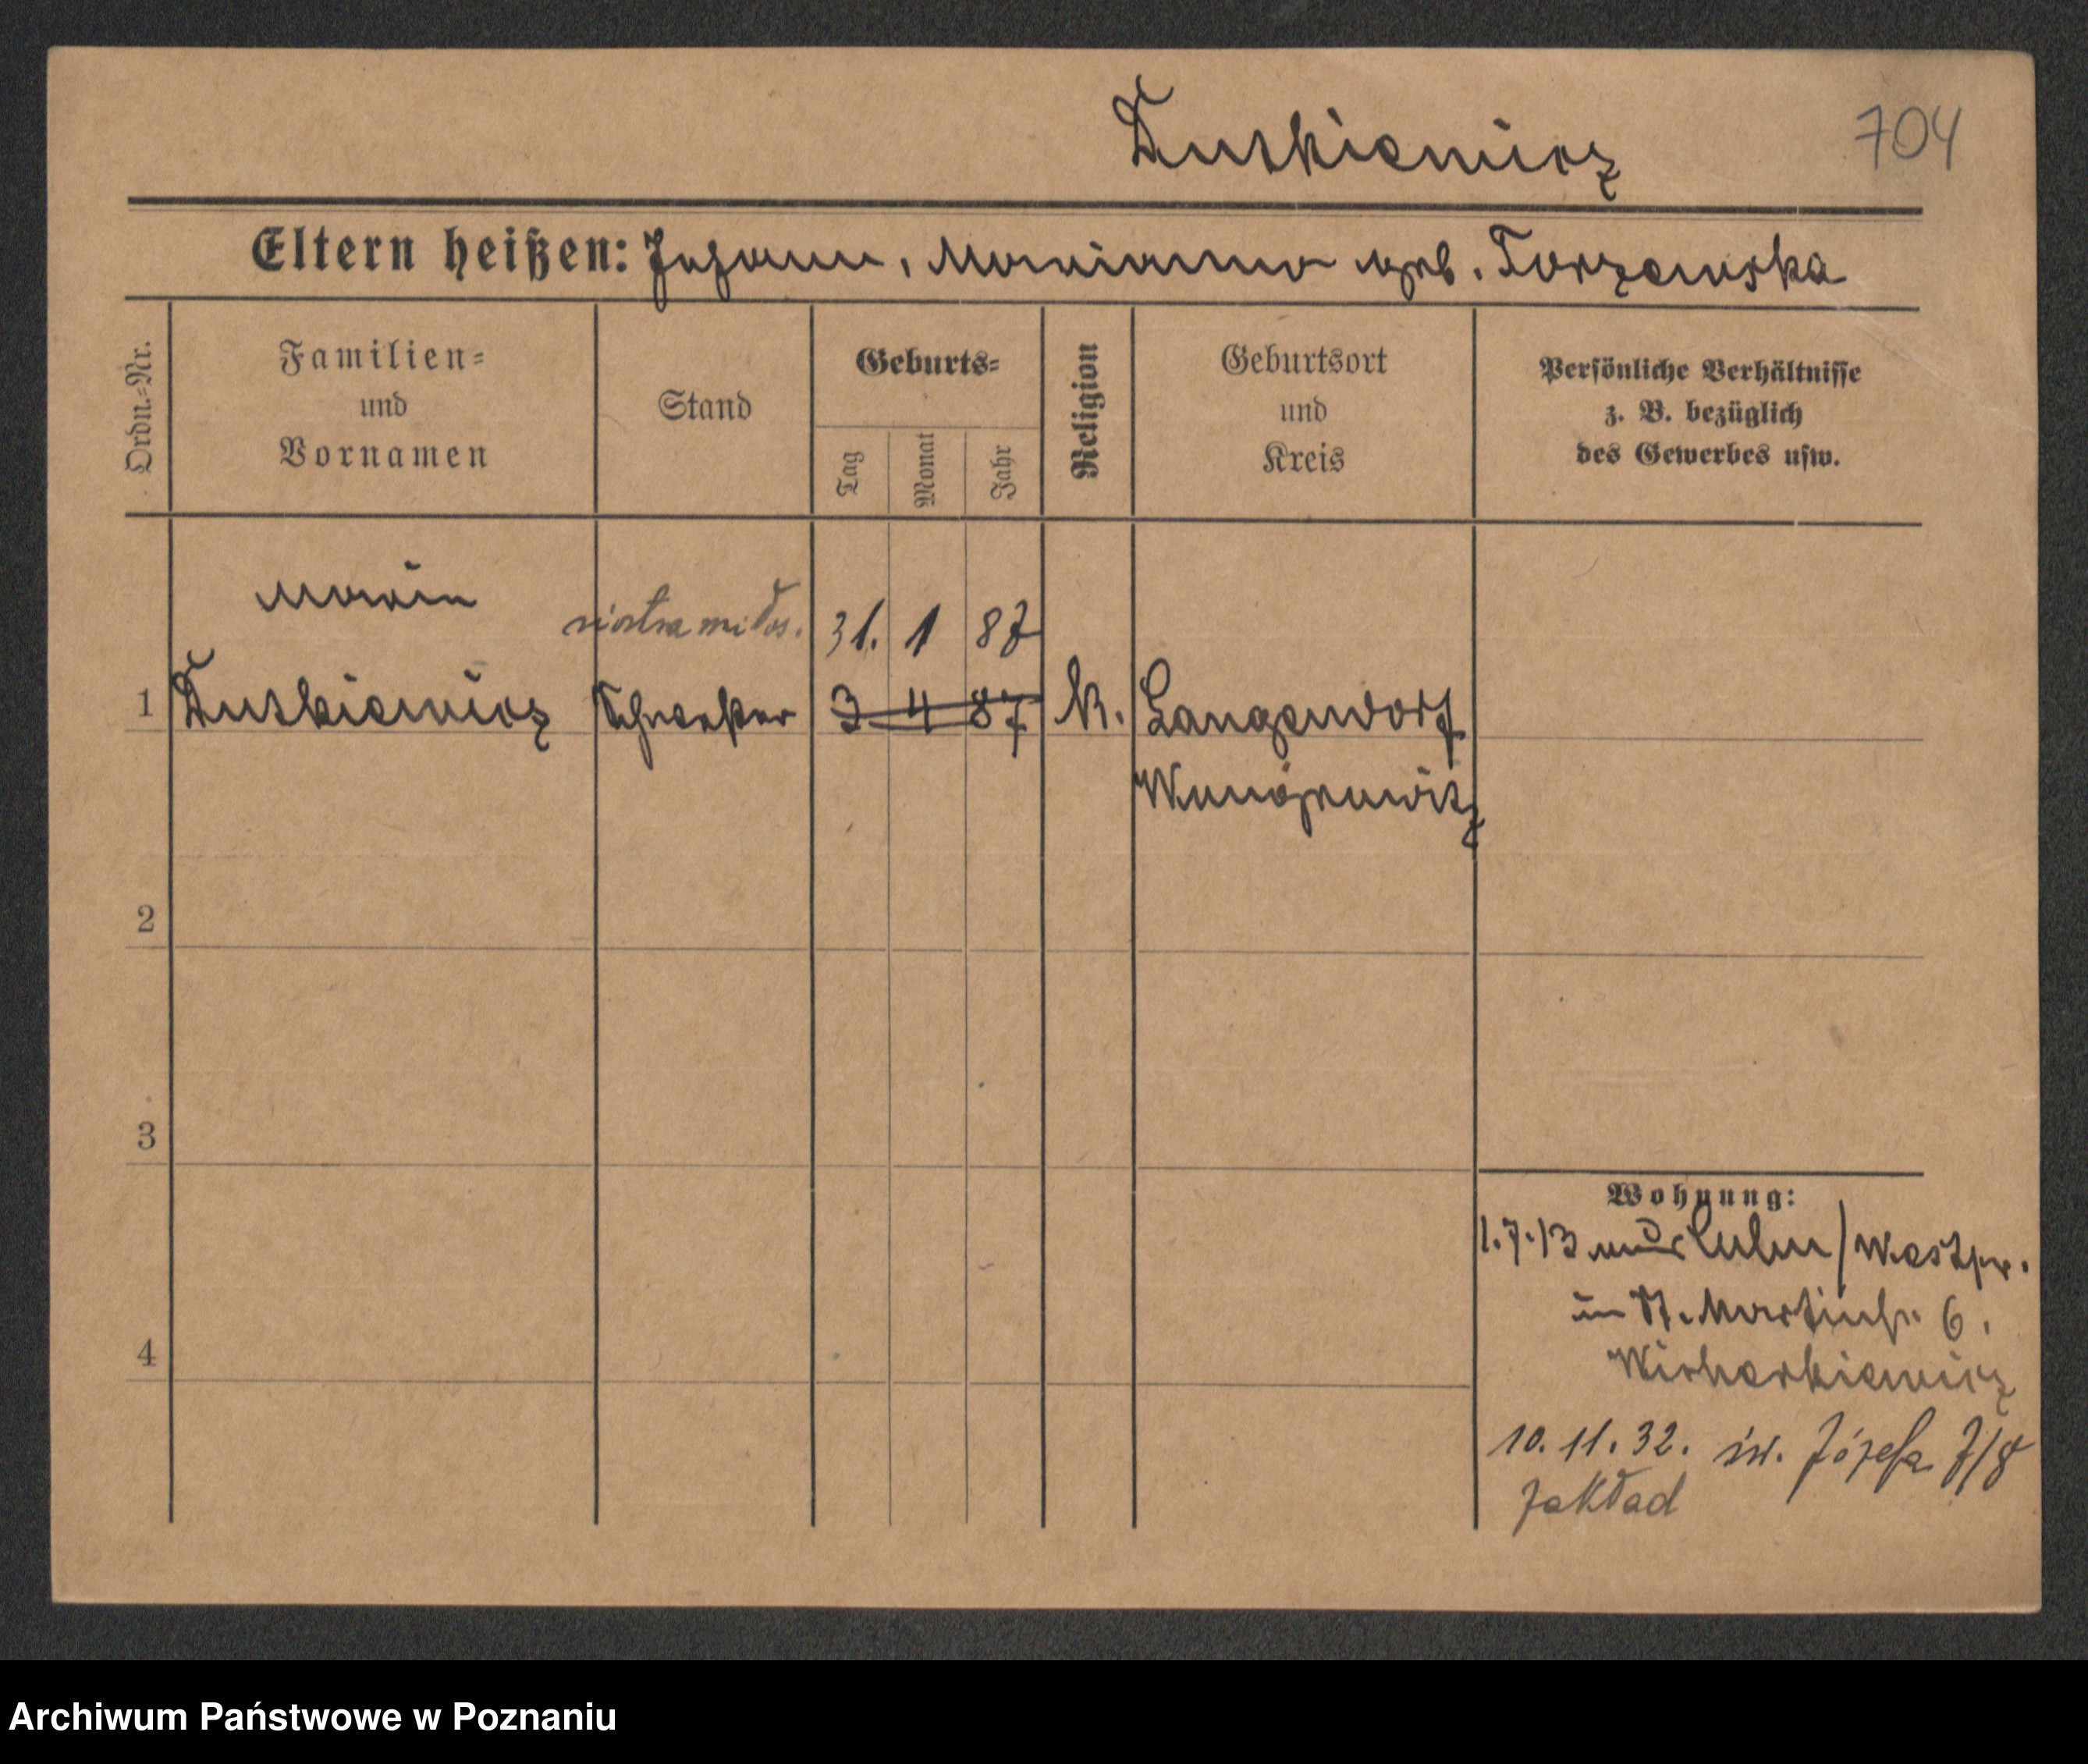 Duszkiewicz 704
Eltern heißen: Johann, Marianna geb. Torzewska
Ordn.=Nr.
Familien=
und
Vornamen
Stand
Geburts=
Tag
Monat
Jahr
Religion
Geburtsort
und
Kreis
Persönliche Verhältnisse
z. B. bezüglich
des Gewerbes usw.
Marie
siostra miłos. 31. 1 87
1 Schwester 3 4 87 K. Langendorf
2
3
4
Wohnung:
1.7.13 aus Culm/Westpr.
in St. Martinstr. 6.
10.11.32. św. Józefa 7/8
zakład
Archiwum Państwowe w Poznaniu